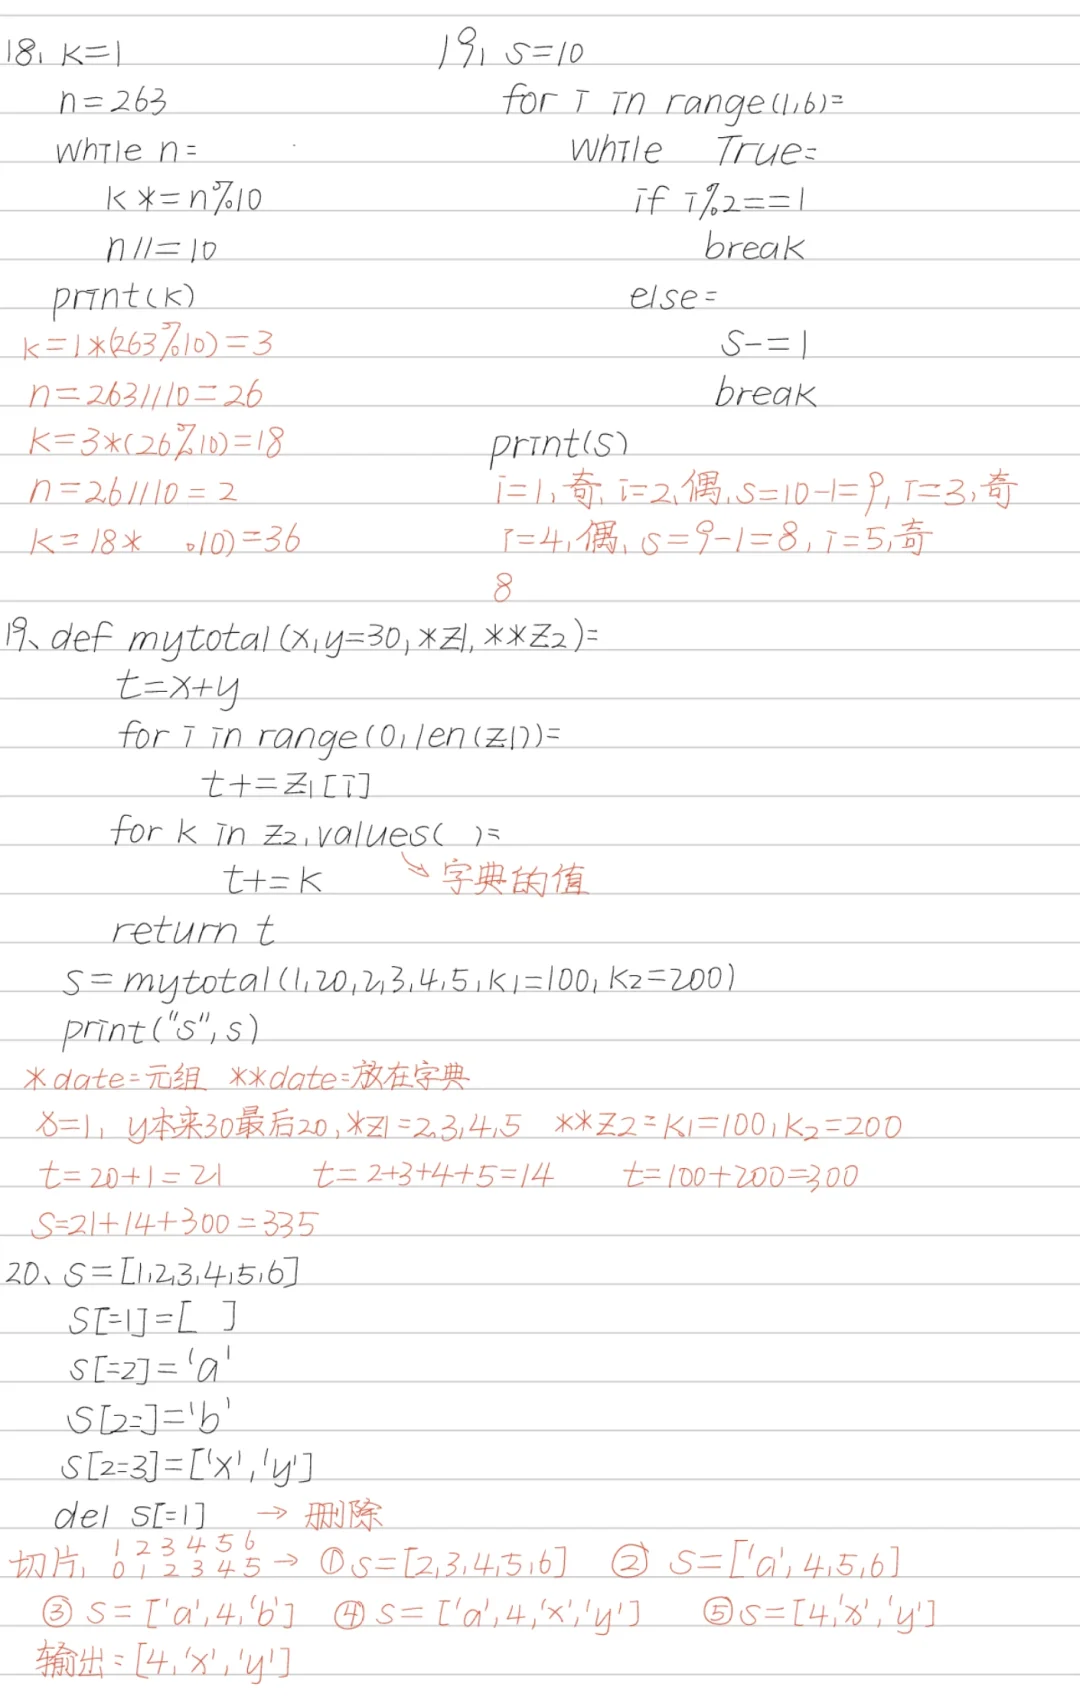 18、k=1
n=263
while n:
k*=n%10
n//=10
print(k)
k=1*(263%10)=3
n=263//10=26
k=3*(26%10)=18
n=26//10=2
k=18* 10)=36
19、s=10
for i in range(1,6):
while True:
if i%2==1
break
else:
s-=1
break
print(s)
i=1,奇、i=2、偶、s=10-1=9,i=3,奇
i=4,偶、s=9-1=8,i=5,奇
8
19、def mytotal(x,y=30,*z1,**z2):
t=x+y
for i in range(0,len(z1)):
t+=z1[i]
for k in z2.values( ):
t+=k →字典的值
return t
s=mytotal(1,20,2,3,4,5,k1=100,k2=200)
print("s",s)
*date:元组 **date:放在字典
x=1, y本来30最后20,*z1=2,3,4,5 **z2:k1=100,k2=200
t=20+1=21 t=2+3+4+5=14 t=100+200=300
S=21+14+300=335
20、s=[1,2,3,4,5,6]
s[:1]=[ ]
s[:2]='a'
s[2:]='b'
s[2:3]=['x','y']
del s[:1] →删除
1 2 3 4 5 6
切片, 0 1 2 3 4 5 → ①s=[2,3,4,5,6] ② s=['a',4,5,6]
③ s=['a',4,'b'] ④ s=['a',4,'x','y'] ⑤s=[4,'x','y']
输出:[4,'x','y']